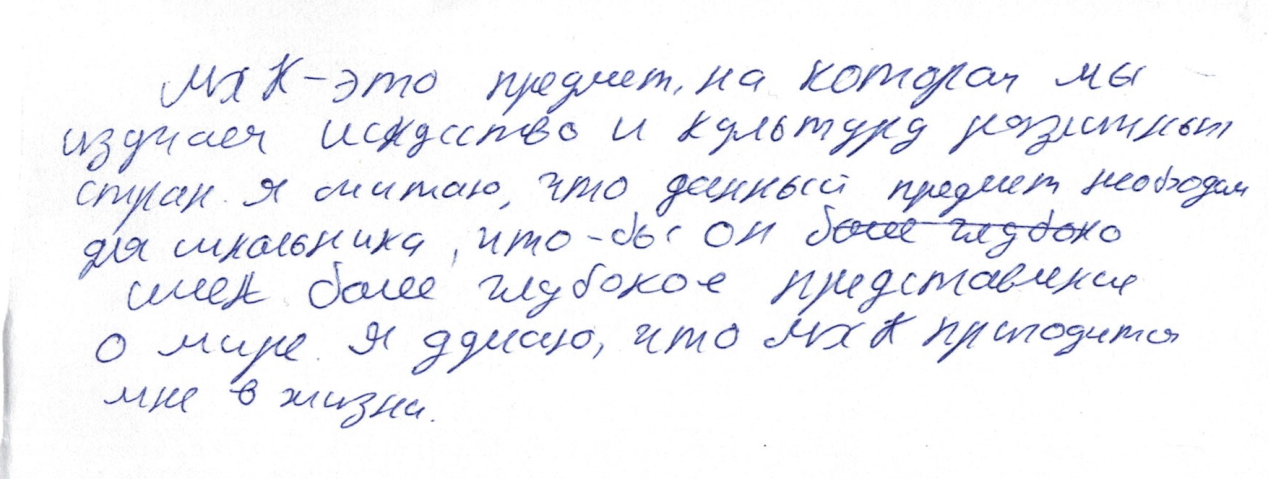 МХК - это предмет, на котором мы
изучаем искусство и культуру различных
стран. Я считаю, что данный предмет необходим
для школьника, что-бы он более глубоко
имел более глубокое представление
о мире. Я думаю, что МХК пригодится
мне в жизни.